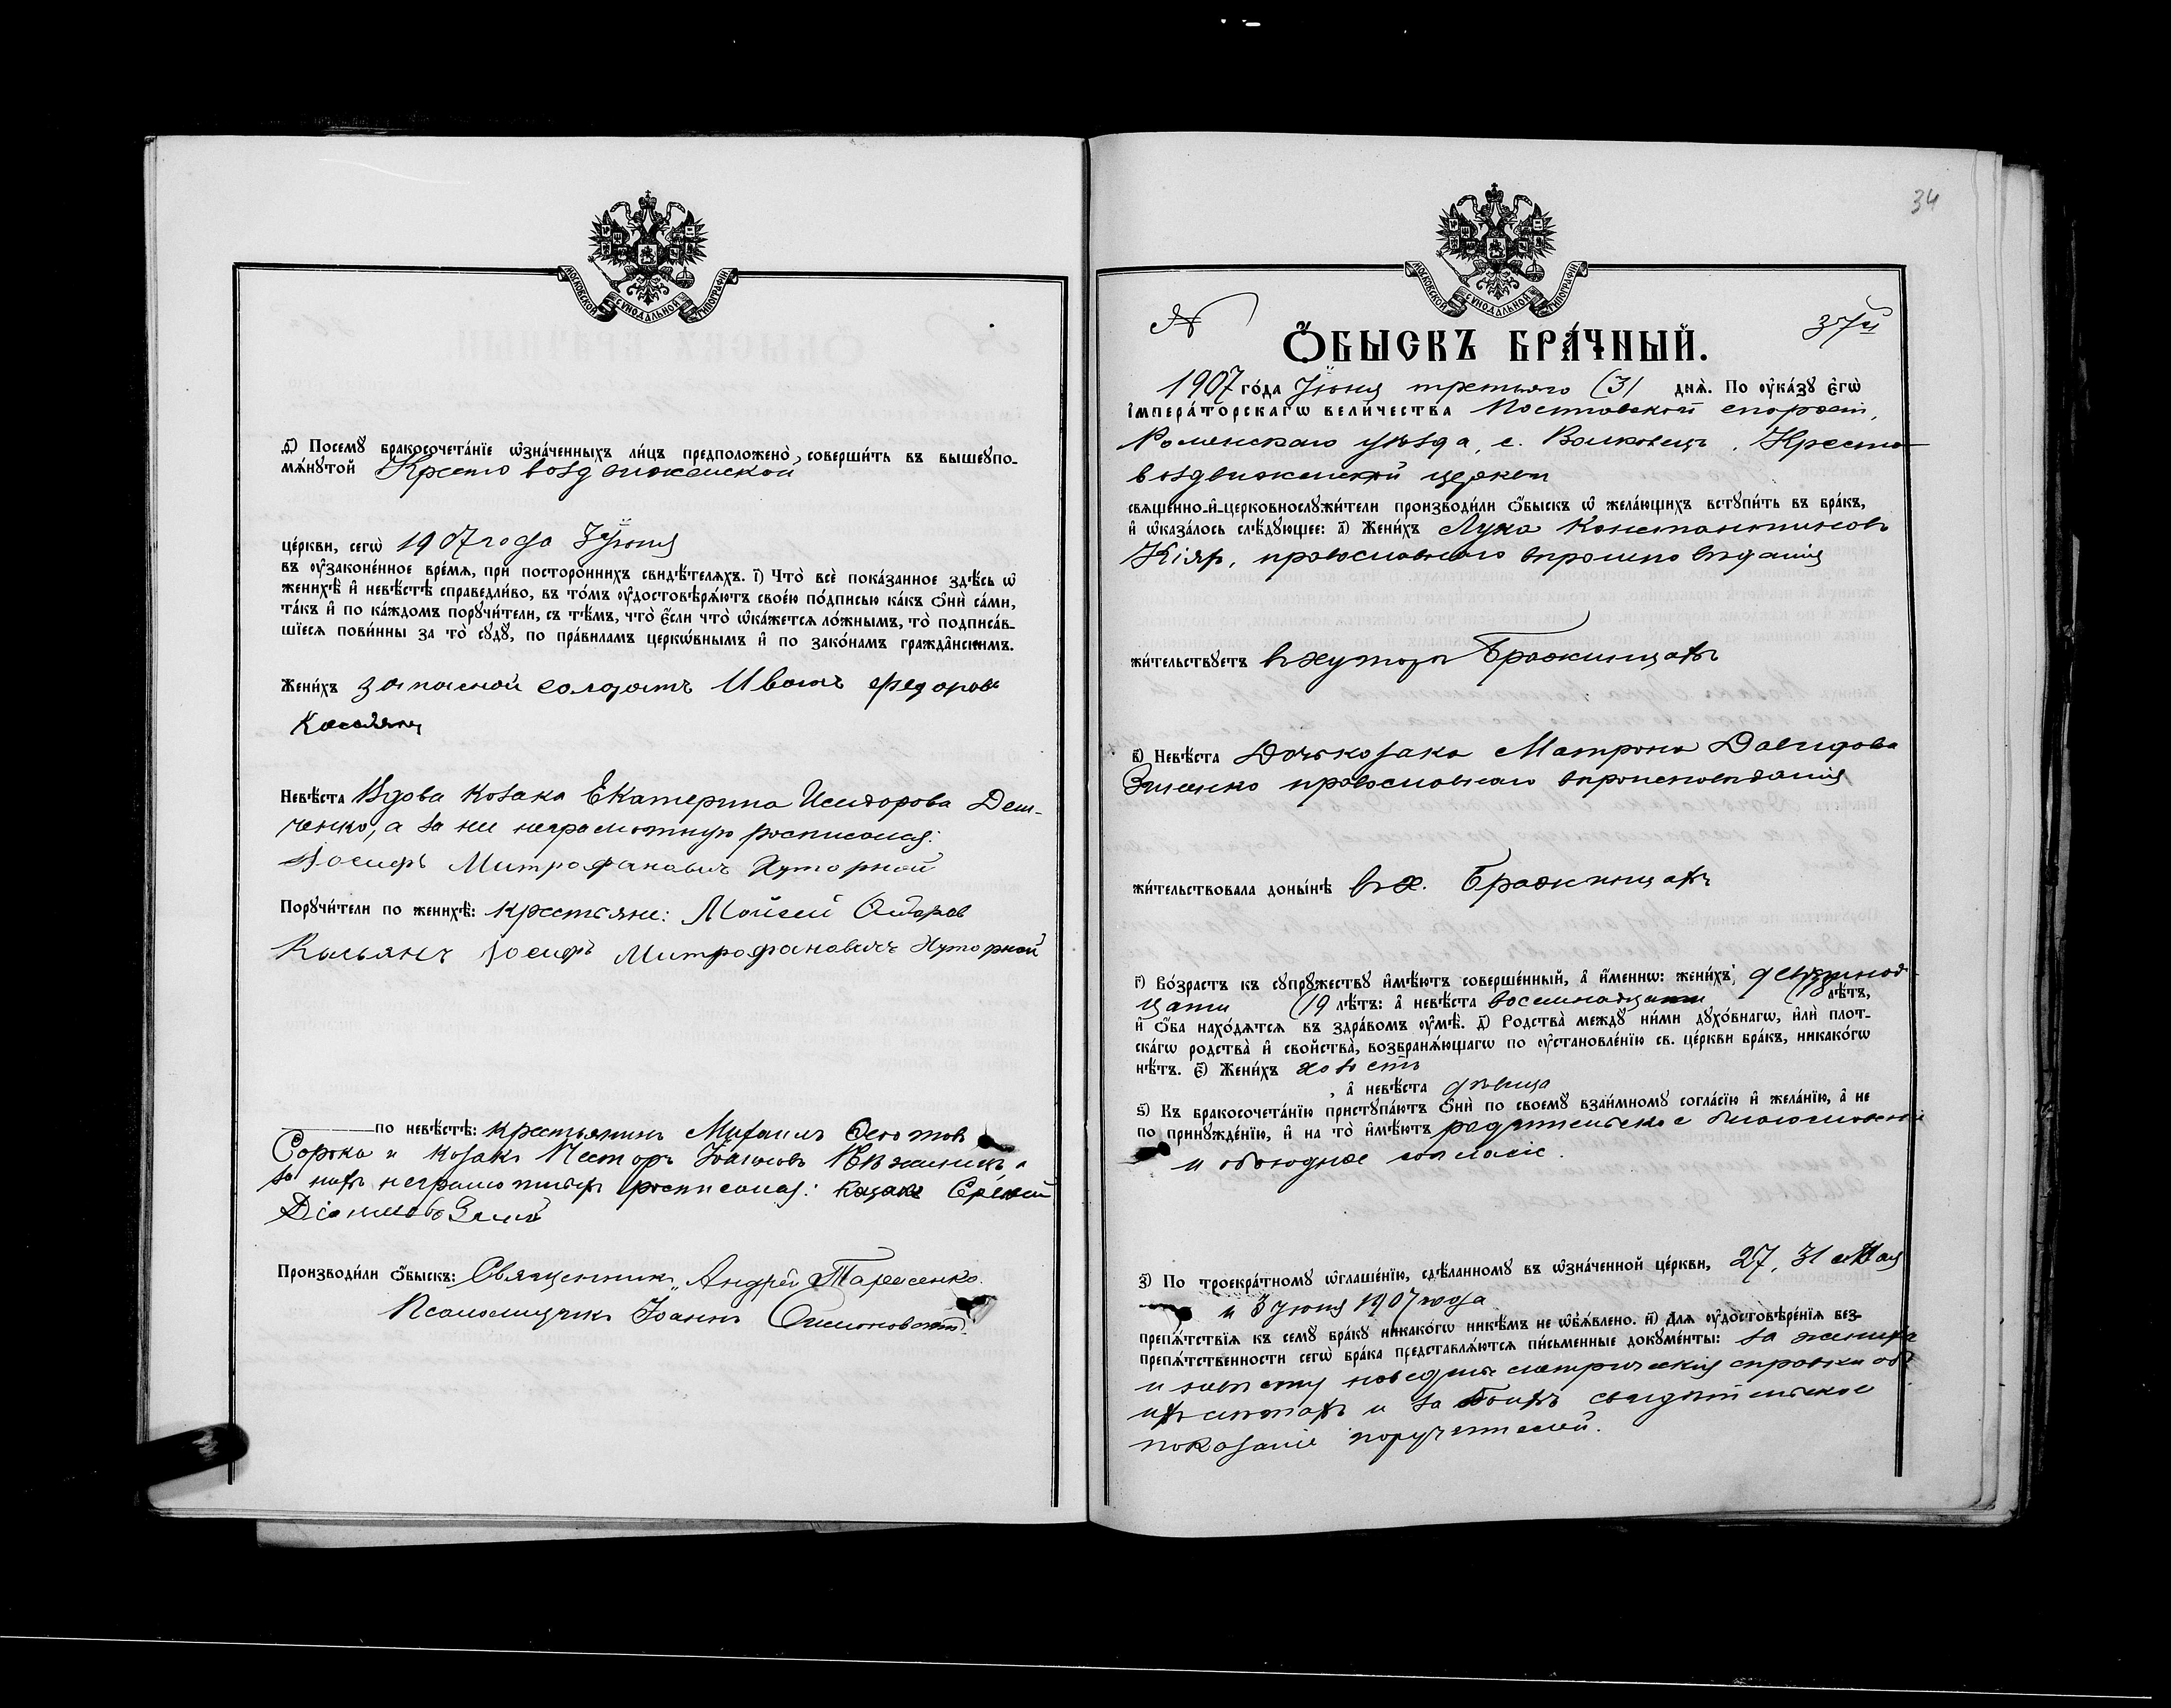 МОСКОВСКОЙ СѴНОДАЛЬНОЙ ТИПОГРАФІИ
Ѳ҃) Посемꙋ бракосочета́нїе ѡ҆зна́ченныхъ ли́цъ предположено̀ соверши́ть въ вышеꙋпо-
мѧ́нꙋтой Кресто воздвиженской
це́ркви, сегѡ̀ 1907 года 3 Іюня
въ ᲂу҆зако́ненное вре́мѧ, при посторо́ннихъ свидѣ́телѧхъ. І҃) Что̀ всѐ пока́занное здѣ́сь ѡ҆
женихѣ̀ и҆ невѣ́стѣ справедли́во, въ то́мъ ᲂу҆достовѣрѧ́ютъ свое́ю по́дписью ка́къ ѻ҆нѝ са́ми,
та́къ и҆ по ка́ждомъ порꙋчи́тели, съ тѣ́мъ, что̀ є҆́сли что̀ ѡ҆ка́жетсѧ ло́жнымъ, то̀ подписа́в-
шїесѧ пови́нны за то̀ сꙋдꙋ̀, по пра́виламъ церкѡ́внымъ и҆ по зако́намъ гражда́нскимъ.
Жени́хъ запасной солдатъ Иванъ Федоровъ
Касьянъ
Невѣ́ста Вдова козака Екатерина Исидорова Дем-
ченко, а за нее неграмотную росписался:
Іосифъ Митрофановичъ Хуторной
Порꙋчи́тели по женихѣ̀: крестьяне: Моисей
Касьянъ Іосифъ Митрофановичъ Хуторной
по невѣ́стѣ: крестьянинъ Михаилъ
Сорока и козакъ Несторъ а
за нихъ неграмотныхъ росписался: казакъ

Производи́ли ѻ҆́быскъ: Священникъ Андрей Тарасенко.
Псаломщикъ Іоаннъ
34
МОСКОВСКОЙ СѴНОДАЛЬНОЙ ТИПОГРАФІИ
№ 37й
Ѻ҆́БЫСКЪ БРА́ЧНЫЙ.
1907 го́да Іюня третьяго (3) днѧ̀. По ᲂу҆ка́зꙋ є҆гѡ̀
і҆мпера́торскагѡ вели́чества
Роменскаго уѣзда, с. Волковецъ, Кресто-
воздвиженской церкви
свѧще́нно-и҆-церковнослꙋжи́тели производи́ли ѻ҆́быскъ ѡ҆ жела́ющихъ встꙋпи́ть въ бра́къ,
и҆ ѡ҆каза́лось слѣ́дꙋющее: а҃) Жени́хъ Лука Константиновъ
Кіяр, православнаго вѣроисповѣданія
жи́тельствꙋетъ въ хуторѣ Бражинцахъ
в҃) Невѣ́ста Дочь козака Матрона Давидова
православнаго вѣроисповѣданія
жи́тельствовала доны́нѣ въ х. Бражинцахъ
г҃) Во́зрастъ къ сꙋпрꙋ́жествꙋ и҆мѣ́ютъ соверше́нный, а҆ и҆́меннѡ: жени́хъ девятнад-
цати (19 лѣ́тъ: а҆ невѣ́ста восемнадцати (18 лѣ́тъ,
и҆ ѻ҆́ба нахо́дѧтсѧ въ здра́вомъ ᲂу҆мѣ̀. д҃) Родства̀ междꙋ̀ ни́ми дꙋхо́внагѡ, и҆лѝ плот-
ска́гѡ родства̀ и҆ сво́йства̀, возбранѧ́ющагѡ по ᲂу҆становле́нїю св. це́ркви бра́къ, никако́гѡ
нѣ́тъ. є҃) Жени́хъ холостъ
, а҆ невѣ́ста дѣвица
ѕ҃) Къ бракосочета́нїю пристꙋпа́ютъ ѻ҆нѝ по своемꙋ̀ взаи́мномꙋ согла́сїю и҆ жела́нїю, а҆ не
по принꙋжде́нїю, и҆ на то̀ и҆мѣ́ютъ родительское благословеніе
и обоюдное согласіе.
з҃) По троекра́тномꙋ ѡ҆глаше́нїю, сдѣ́ланномꙋ въ ѡ҆зна́ченной це́ркви, 27, 31 Мая
и 3 Іюня 1907 года
препѧ́тствїѧ къ семꙋ̀ бра́кꙋ никако́гѡ никѣ́мъ не ѡ҆б̾ѧ́влено. и҃) Длѧ ᲂу҆достовѣре́нїѧ без-
препѧ́тственности сегѡ̀ бра́ка представлѧ́ютсѧ пи́сьменные докꙋме́нты: за жениха
и невѣсту наведены метрическія справки объ
ихъ лѣтахъ и за обоихъ свидѣтельское
показаніе поручителей.